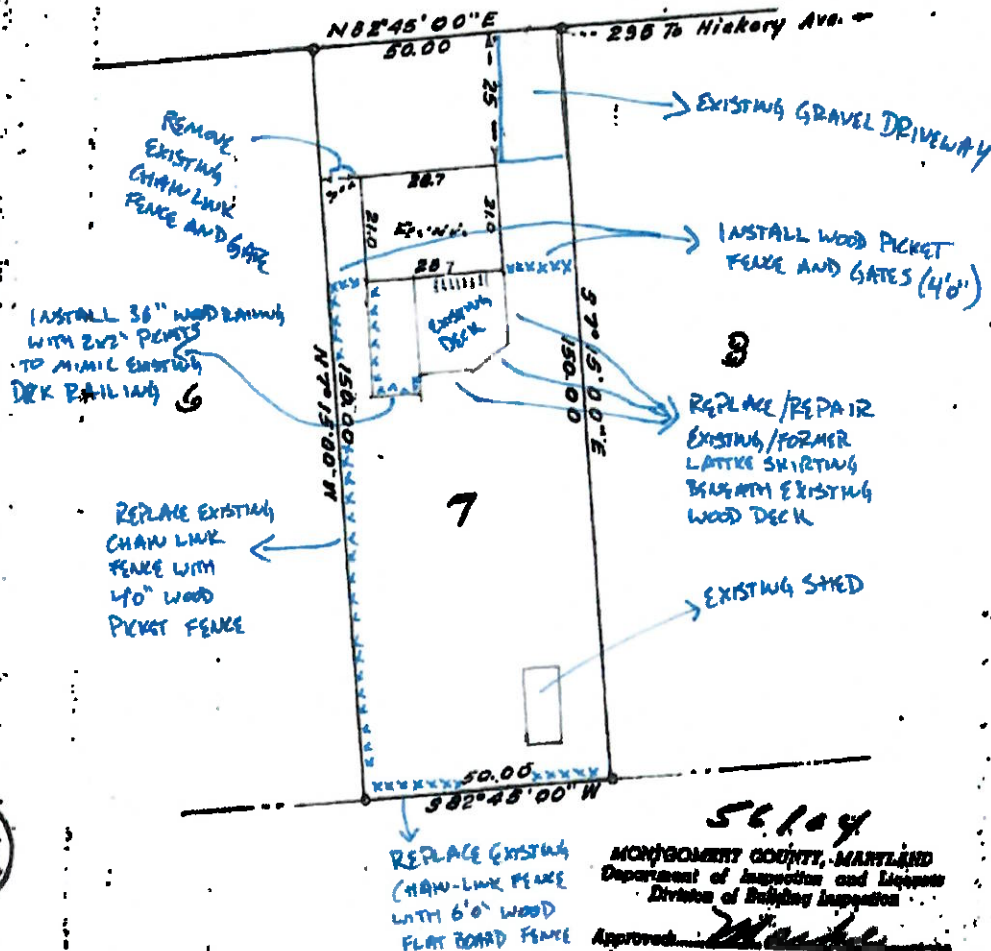 N82°45'00"E
50.00
295 To Hickory Ave.
25
EXISTING GRAVEL DRIVEWAY
REMOVE
EXISTING
CHAIN LINK
FENCE AND GATE
28.7
21.0
21.0
28.7
INSTALL WOOD PICKET
FENCE AND GATES (4'0")
EXISTING
DECK
INSTALL 36" WOOD RAILING
WITH 2x2" PICKETS
TO MIMIC EXISTING
DECK RAILING
6
N 7°15'00"W
150.00
S 7°15'00"E
150.00
8
REPLACE/REPAIR
EXISTING/FORMER
LATTICE SKIRTING
BENEATH EXISTING
WOOD DECK
7
REPLACE EXISTING
CHAIN LINK
FENCE WITH
4'0" WOOD
PICKET FENCE
EXISTING SHED
50.00
S82°45'00"W
REPLACE EXISTING
CHAIN-LINK FENCE
WITH 6'0" WOOD
FLAT BOARD FENCE
MONTGOMERY COUNTY, MARYLAND
Department of Inspection and Licenses
Division of Building Inspection
Approved